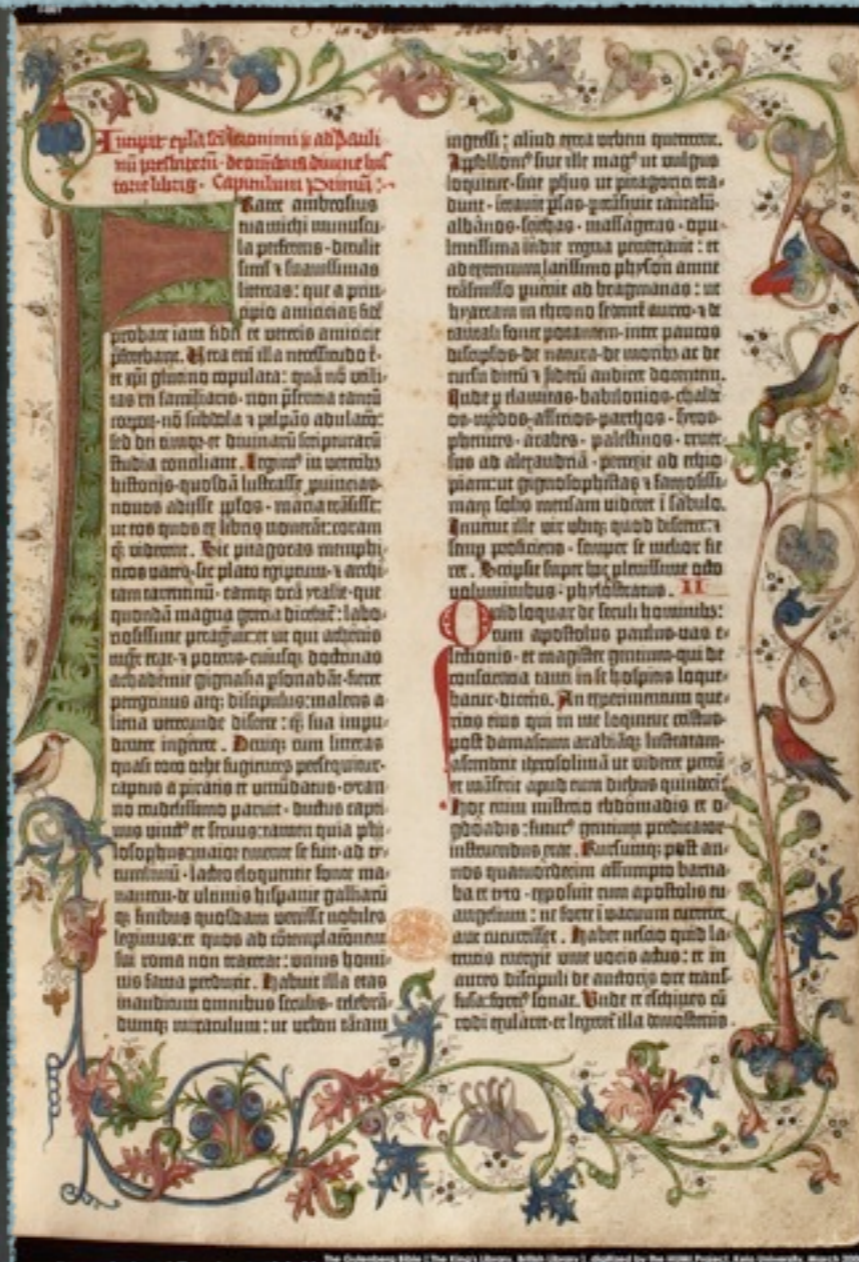 Incipit epl'a sci Iheronimi ad Pauli
nū presbiterū de omībus diuine his
torie libris. Capitulum Primū
Frater ambrosius
tua michi munuscu
la perferens detulit
simul et suauissimas
litteras : que a prin
cipio amicicie
probate iam fidei et veteris amicicie
Vera eni illa necessitudo ē
et xpi glutino copulata : quā nō vtili
tas rei familiaris non presentia tantū
corporū nō subdola et palpās adulacio
sed dei timor et diuinarū scripturarū
studia conciliant. Legimus in veteribz
historijs quosdā lustrasse puincias
nouos adijsse pplos maria trāsisse
ut eos quos ex libris nouerāt: coram
qz viderent. Sic pitagoras memphi
ticos vates sic plato egiptum et archi
tam tarentinū eamqz orā ytalie que
quondā magna grecia dicebat: labo
riosissime peragrauit: et ut qui athenis
mgr erat et potens cuiusqz doctrinas
achademie gignasia psonabāt fieret
peregrinus atqz discipulus: malens a
liena verecunde discere : qz sua impu
denter ingerere. Deniqz cum litteras
quasi toto orbe fugientes persequitur
captus a piratis et venūdatus tyran
no crudelissimo paruit ductus capti
uus vinctus et seruus: tamen quia phi
losophus: maior emente se fuit ad ty
tumliuiū lacteo eloquentie fonte ma
nantem de vltimis hispanie galliarū
qz finibus quosdam venisse nobiles
legimus: et quos ad cōtemplacionem
sui roma non traxerat: vnius homi
nis fama perduxit. Habuit illa etas
inauditum omnibus seculis celebrā
dumqz miraculum : ut vrbem tātam
ingressi : aliud extra vrbem quererent.
Appollonius siue ille magus ut vulgus
loquitur siue phus ut pitagorici tra
dunt intrauit psas ptrāsiuit caucasū
albanos scithas massagetas opu
lentissima indie regna penetrauit : et
ad extremum latissimo physon amne
trāsmisso puenit ad bragmanas : ut
hyarcam in throno sedentē aureo et de
tantali fonte potantem inter paucos
discipulos de natura de moribz ac de
cursu dierū et siderū audiret docentem.
Inde p elamitas babilonios chalde
os medos assirios parthos syros
phenices arabes palestinos reuer
sus ad alexandriā perrexit ad ethio
piam: ut gignosophistas et famosissi
mam solis mensam videret ī sabulo.
Inuenit ille vir vbiqz quod disceret: et
semp proficiens semper se melior fie
ret. Scripsit super hoc plenissime octo
voluminibus phylostratus. II
Quid loquar de seculi hominibz:
cum apostolus paulus vas e
lectionis et magister gentium qui de
consciencia tanti in se hospitis loque
batur dicens. An experimentum que
ritis eius qui in me loquitur cristus
post damascum arabiāqz lustratam
ascenderit iherosolimā ut videret petrū
et māserit apud eum diebus quindeci
Hoc enim misterio ebdomadis et o
gdoadis : futurus gentium predicator
instruendus erat. Rursumqz post an
nos quatuordecim assumpto barnaba
ba et tyto exposuit cum apostolis eu
angelium : ne forte ī vacuum curreret
aut cucurrisset. Habet nescio quid la
tentis energie viue vocis actus : et in
aures discipuli de auctoris ore trans
fusa: fortius sonat. Vnde et eschines cū
rodi exularet et legeretur illa demostenis
The Gutenberg Bible (The King's Library, British Library), digitized by the HUMI Project, Keio University, March